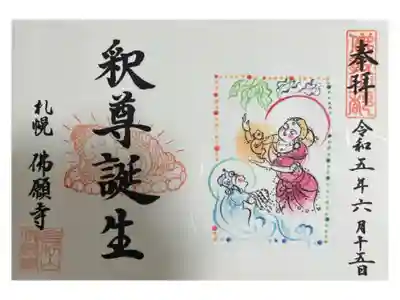 奉拝
令和五年六月十五日
釈尊誕生
札幌
佛願寺